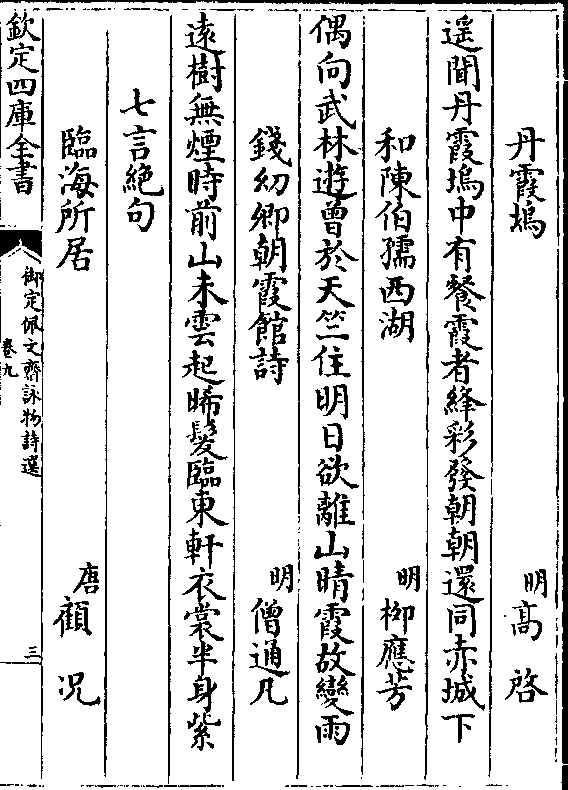 丹霞塢 明 高啓
遥聞丹霞塢中有餐霞者絳彩發朝朝還同赤城下
和陳伯孺西湖 明 柳應芳
偶向武林遊曾於天竺住明日欲離山晴霞故變雨
錢幼卿朝霞館詩 明 僧通凡
遠樹無煙時前山未雲起晞髮臨東軒衣裳半身紫
七言絶句
臨海所居 唐 顧况
欽定四庫全書 御定佩文齋詠物詩選 卷九 三